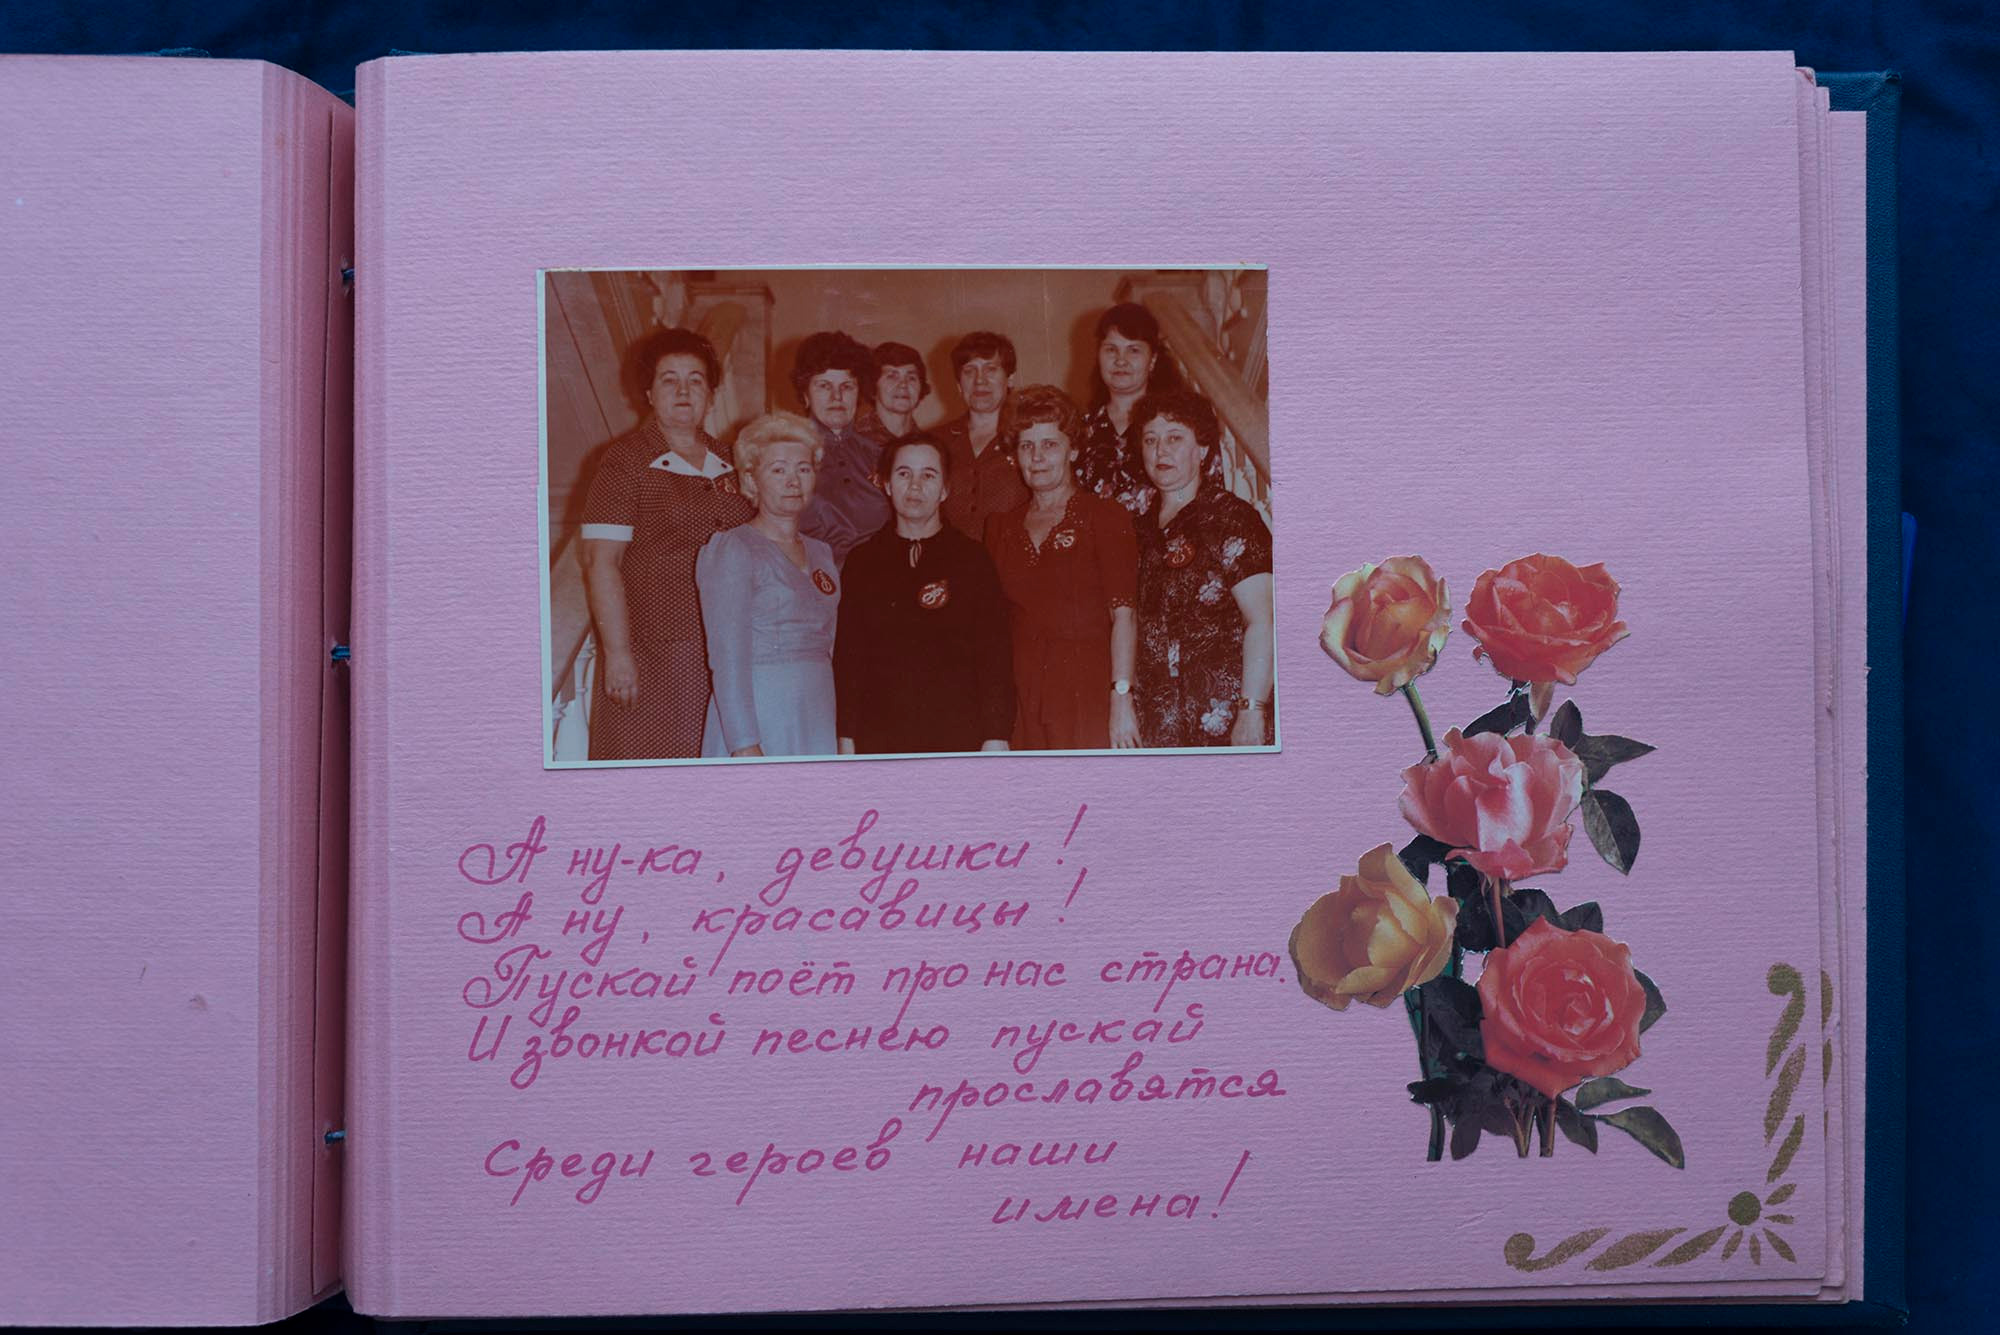 А ну-ка, девушки!
А ну, красавицы!
Пускай поёт про нас страна.
И звонкой песнею пускай
прославятся
Среди героев наши
имена!